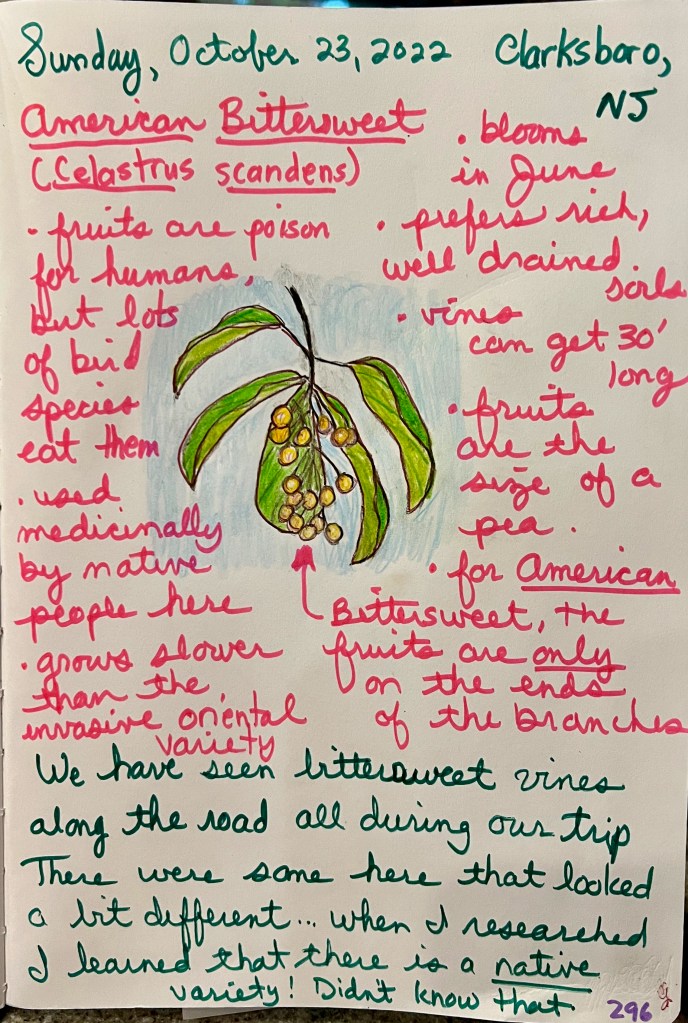 Sunday, October 23, 2022 Clarksboro,
NJ
American Bittersweet
(Celastrus scandens)
• fruits are poison
for humans,
but lots
of bird
species
eat them
• used
medicinally
by native
people here
• grows slower
than the
invasive oriental
variety
• blooms
in June
• prefers rich,
well drained
soils
• vines
can get 30'
long
• fruits
are the
size of a
pea.
• for American
Bittersweet, the
fruits are only
on the ends
of the branches
We have seen bittersweet vines
along the road all during our trip
There were some here that looked
a bit different... when I researched
I learned that there is a native
variety! Didn't know that
296